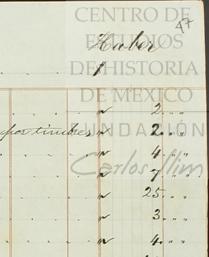 CENTRO DE
47
ESTUDIOS
Haber
DE HISTORIA
DE MÉXICO
2
por timbres 2
FUNDACIÓN
4
Carlos Slim
7
25
3
4